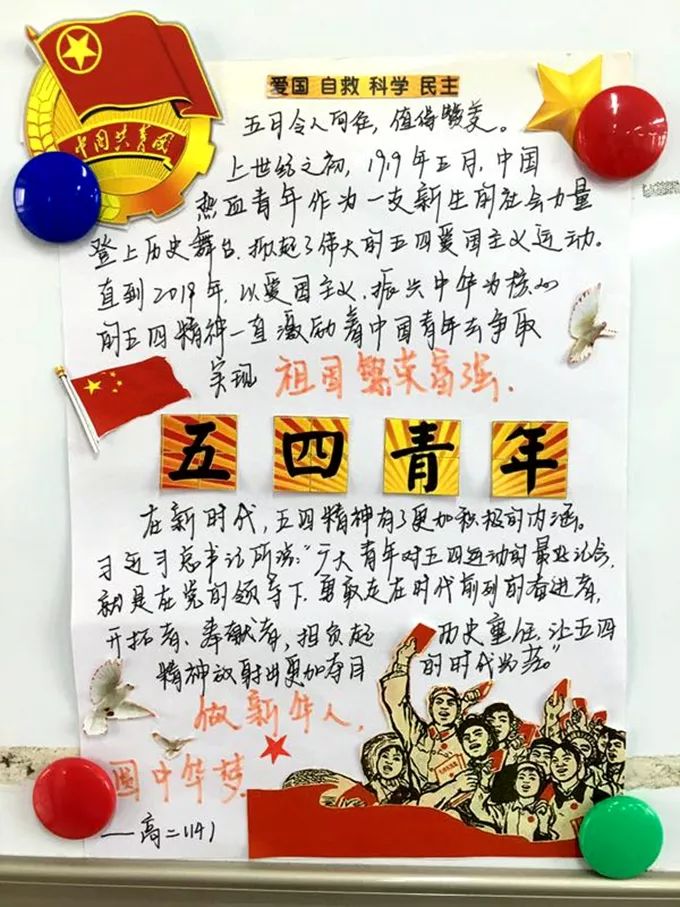 中国共青团
爱国 自救 科学 民主
五月令人向往，值得赞美。
上世纪之初，1919年五月，中国
热血青年作为一支新生的社会力量
登上历史舞台，掀起了伟大的五四爱国主义运动。
直到2019年，以爱国主义、振兴中华为核心
的五四精神一直激励着中国青年去争取
实现 祖国繁荣富强.
五四青年
在新时代，五四精神有了更加积极的内涵。
习近习总书记所说：“广大青年对五四运动的最好纪念，
就是在党的领导下，勇敢走在时代前列的奋进者，
开拓者、奉献者，担负起 历史重任，让五四
精神放射出更加夺目 的时代光芒。”
做新华人，
圆中华梦
——高二（14）